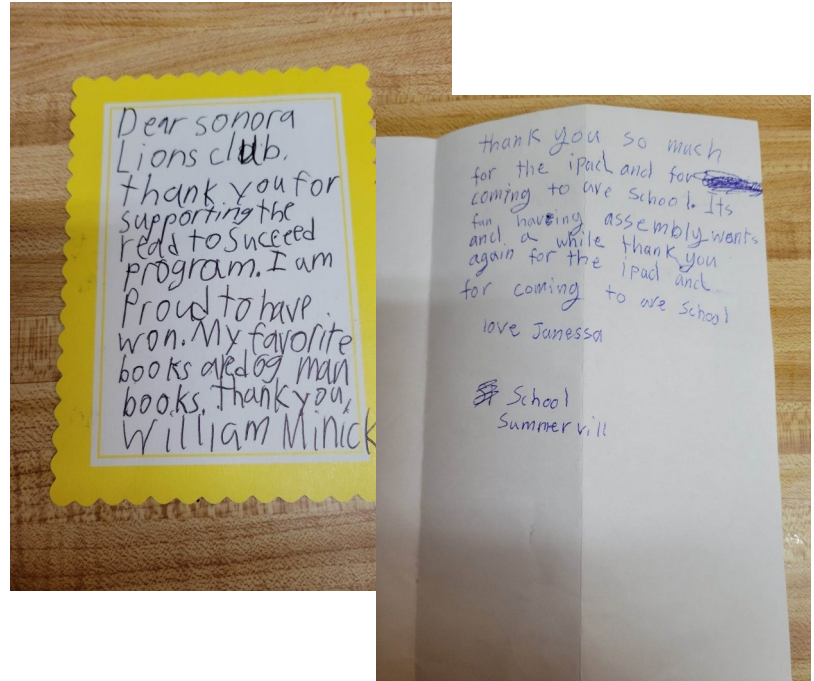 Dear sonora
Lions club.
thank you for
supporting the
read to Succeed
program. I am
Proud to have
won. My favorite
books are dog man
books. thank you,
William Minick
thank you so much
for the ipad and for
coming to ore School. Its
fun having assembly wonts
and a while thank you
again for the ipad and
for coming to ore School
love Janessa
School
Summervill